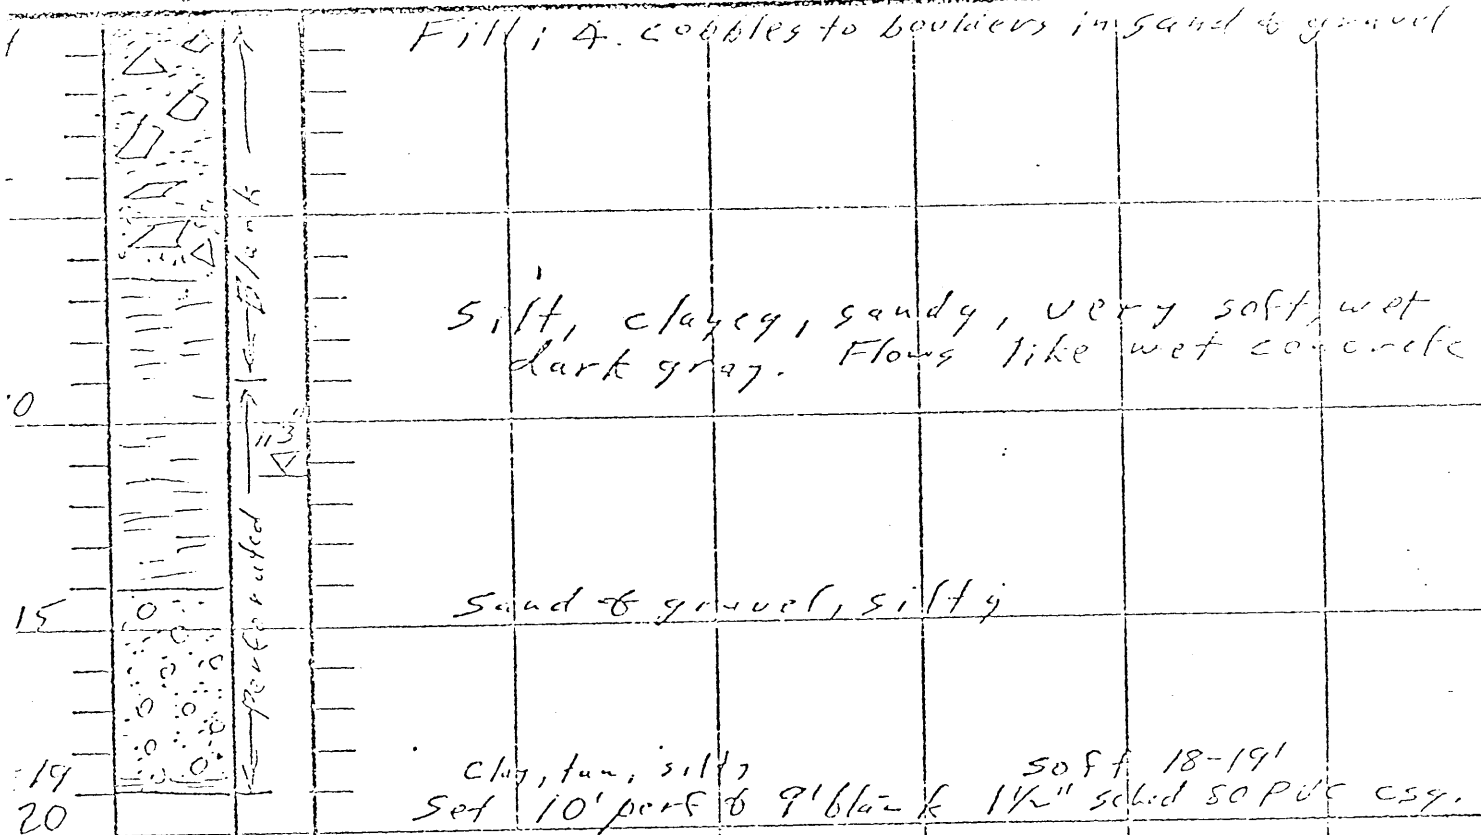 Fill; 4. cobbles to boulders in sand & gravel
Blank
silt, clayey, sandy, very soft, wet
dark gray. Flows like wet concrete
0
Perforated
15
Sand & gravel, silty
19
clay, tan, silty soft 18-19'
20
Set 10' perf & 9' blank 1½" sched 80 PVC csg.